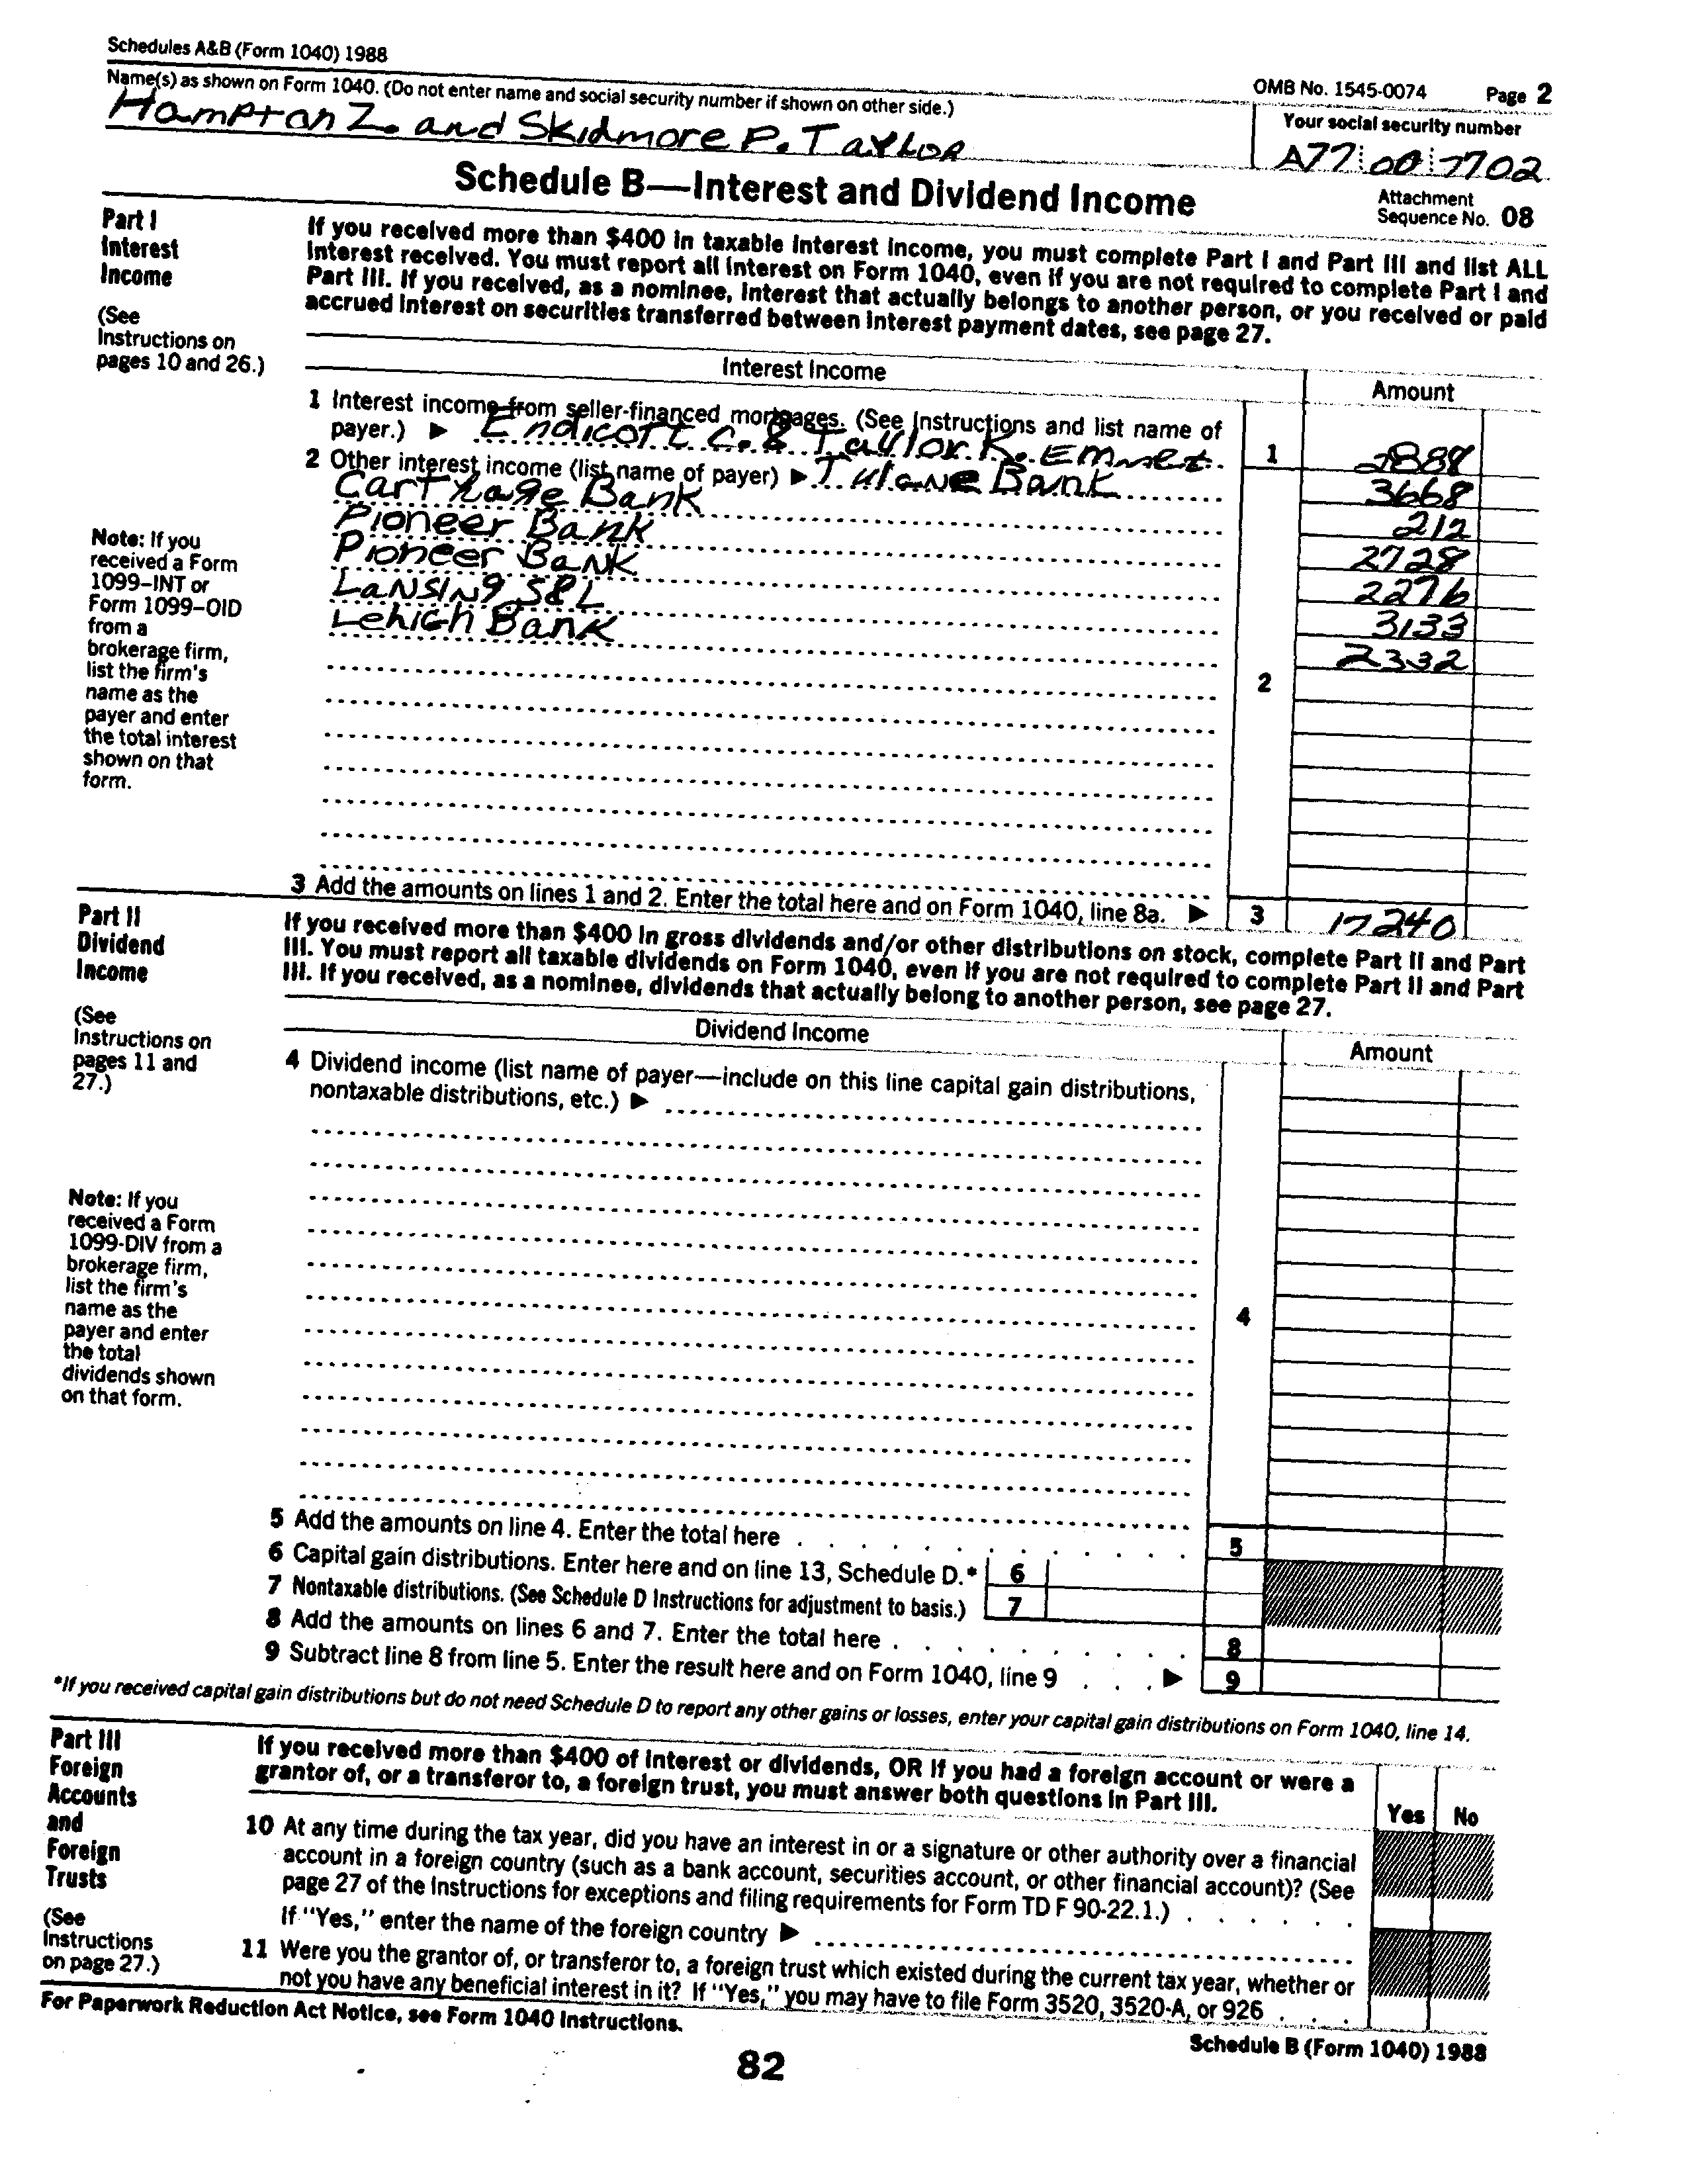 Schedules A&B (Form 1040) 1988
OMB No. 1545-0074 Page 2
Name(s) as shown on Form 1040. (Do not enter name and social security number if shown on other side.)
Your social security number
Hampton Z. and Skidmore P. Taylor
A77 00 7702
Schedule B—Interest and Dividend Income
Attachment
Sequence No. 08
Part I
Interest
Income
(See
Instructions on
pages 10 and 26.)
If you received more than $400 in taxable interest income, you must complete Part I and Part III and list ALL
interest received. You must report all interest on Form 1040, even if you are not required to complete Part I and
Part III. If you received, as a nominee, interest that actually belongs to another person, or you received or paid
accrued interest on securities transferred between interest payment dates, see page 27.
Interest Income Amount
1 Interest income from seller-financed mortgages. (See Instructions and list name of
payer.) ▶ Endicott C. & Taylor K. Emmet 1 2888
2 Other interest income (list name of payer) ▶ Tulane Bank 3668
Carthage Bank 212
Pioneer Bank 2728
Pioneer Bank 2276
Lansing S&L 3133
Lehigh Bank 2332
2
Note: If you
received a Form
1099-INT or
Form 1099-OID
from a
brokerage firm,
list the firm's
name as the
payer and enter
the total interest
shown on that
form.
3 Add the amounts on lines 1 and 2. Enter the total here and on Form 1040, line 8a. ▶ 3 17240
Part II
Dividend
Income
(See
Instructions on
pages 11 and
27.)
If you received more than $400 in gross dividends and/or other distributions on stock, complete Part II and Part
III. You must report all taxable dividends on Form 1040, even if you are not required to complete Part II and Part
III. If you received, as a nominee, dividends that actually belong to another person, see page 27.
Dividend Income Amount
4 Dividend income (list name of payer—include on this line capital gain distributions,
nontaxable distributions, etc.) ▶
4
Note: If you
received a Form
1099-DIV from a
brokerage firm,
list the firm's
name as the
payer and enter
the total
dividends shown
on that form.
5 Add the amounts on line 4. Enter the total here 5
6 Capital gain distributions. Enter here and on line 13, Schedule D.* 6
7 Nontaxable distributions. (See Schedule D Instructions for adjustment to basis.) 7
8 Add the amounts on lines 6 and 7. Enter the total here 8
9 Subtract line 8 from line 5. Enter the result here and on Form 1040, line 9 ▶ 9
*If you received capital gain distributions but do not need Schedule D to report any other gains or losses, enter your capital gain distributions on Form 1040, line 14.
Part III
Foreign
Accounts
and
Foreign
Trusts
(See
Instructions
on page 27.)
If you received more than $400 of interest or dividends, OR if you had a foreign account or were a
grantor of, or a transferor to, a foreign trust, you must answer both questions in Part III.
Yes No
10 At any time during the tax year, did you have an interest in or a signature or other authority over a financial
account in a foreign country (such as a bank account, securities account, or other financial account)? (See
page 27 of the Instructions for exceptions and filing requirements for Form TD F 90-22.1.)
If "Yes," enter the name of the foreign country ▶
11 Were you the grantor of, or transferor to, a foreign trust which existed during the current tax year, whether or
not you have any beneficial interest in it? If "Yes," you may have to file Form 3520, 3520-A, or 926
For Paperwork Reduction Act Notice, see Form 1040 Instructions.
Schedule B (Form 1040) 1988
82